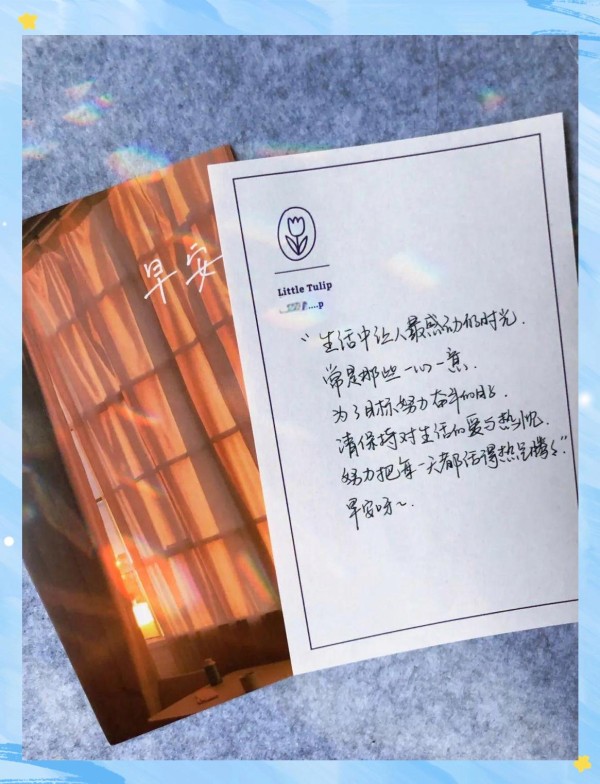 早安
Little Tulip
“生活中让人最感动的时光.
常是那些一心一意.
为了目标努力奋斗的时.
请保持对生活的爱与热忱.
努力把每一天都活得热气腾腾.”
早安呀~.